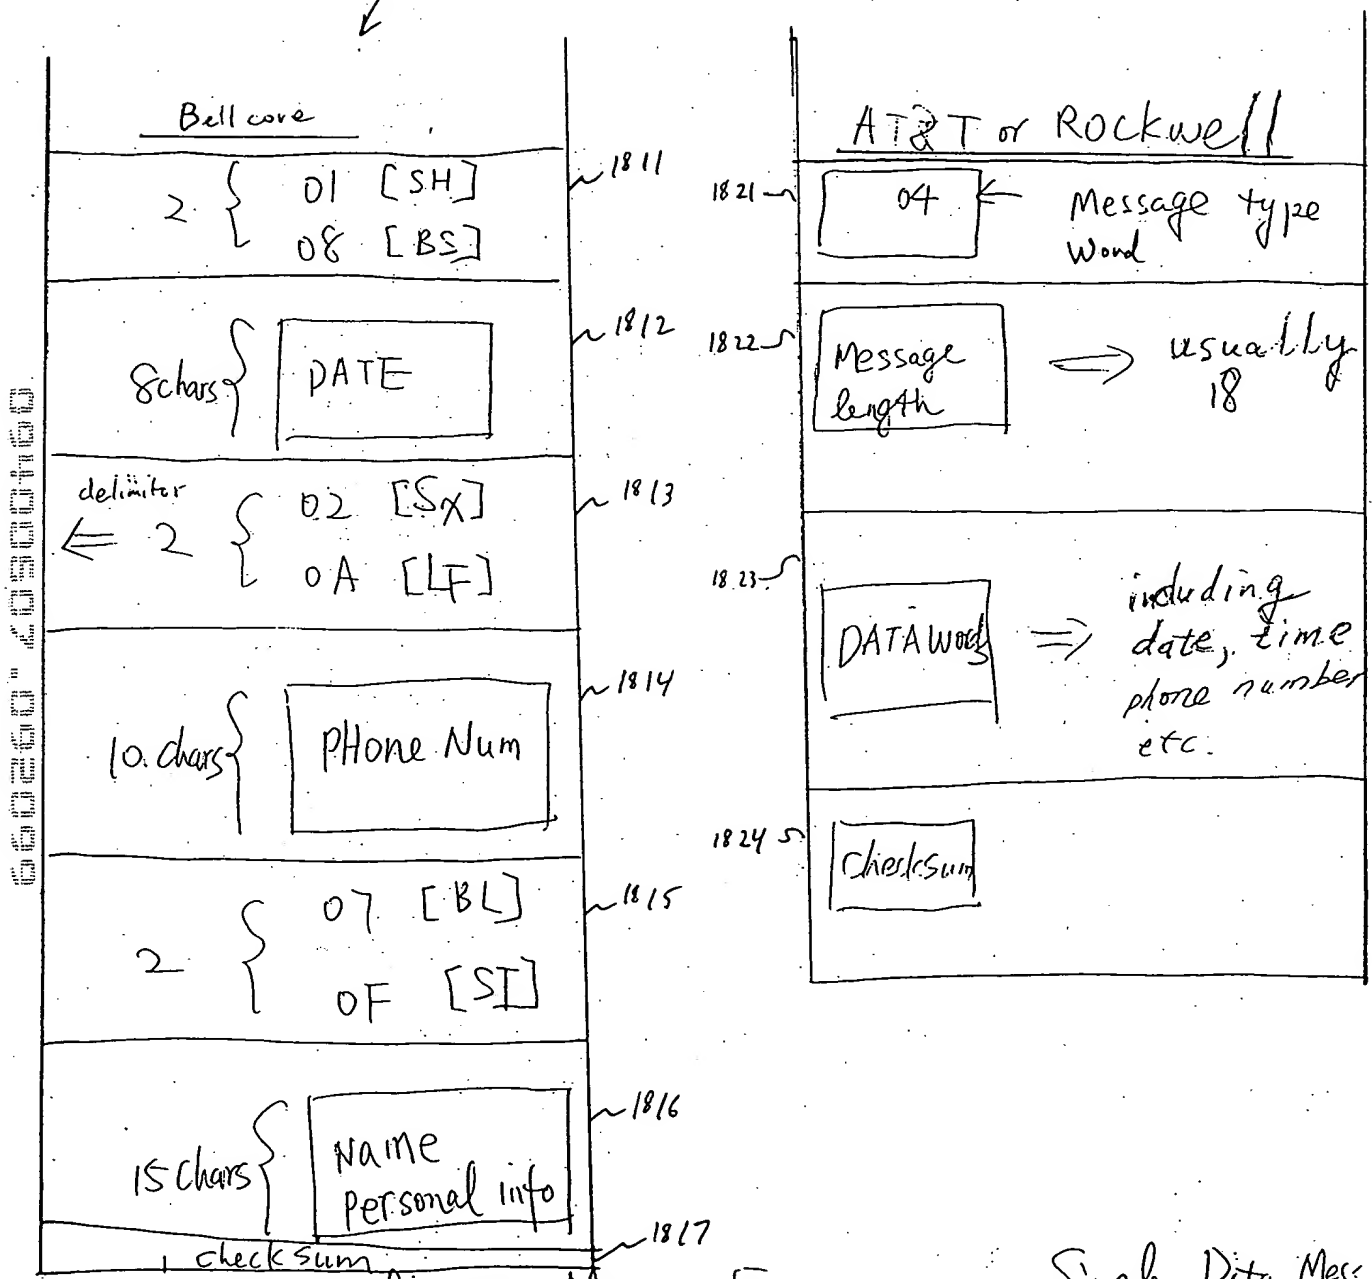 Bellcore
2 { 01 [SH]
08 [BS]
1811
8chars { DATE
1812
delimitor
⇐ 2 { 02 [SX]
0A [LF]
1813
10. chars { PHone Num
1814
2 { 07 [BL]
0F [SI]
1815
15 Chars { Name
personal info
1816
1 checksum
1817
AT&T or Rockwell
1821
04 ← Message type
Word
1822
Message
length ⇒ usually
18
1823
DATA Words ⇒ including
date, time
phone number
etc.
1824
Checksum
Data Mess